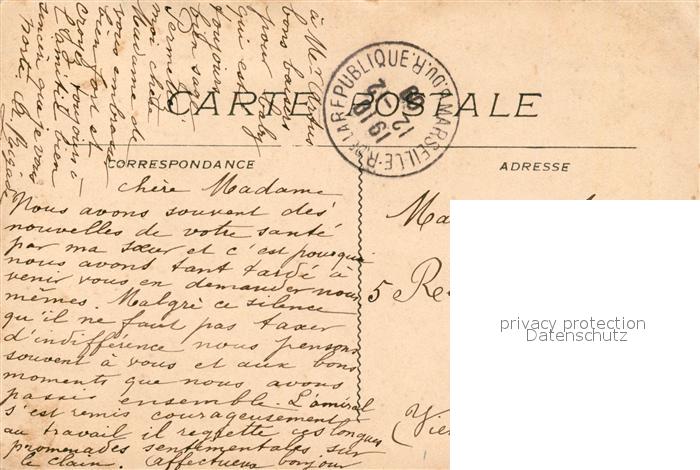 CARTE POSTALE
MARSEILLE-R. DE LA REPUBLIQUE B. DU R.
12
19 10
CORRESPONDANCE
ADRESSE
Chère Madame
Nous avons souvent des
nouvelles de votre santé
par ma sœur et c'est pourquoi
nous avons tant tardé à
venir vous en demander nous
mêmes. Malgré ce silence
qu'il ne faut pas taxer
d'indifférence nous pensons
souvent à vous et aux bons
moments que nous avons
passés ensemble. L'amiral
s'est remis courageusement
au travail il regrette ces longues
promenades sentimentales sur
le Affectueux bonjour
à
bons baisers
pour
qui est
toujours
bien sage
Permettez
moi chère
Madame de
vous embrasser
bien fort et
croyez toujours à
l'amitié bien
que je vous
porte.
5 R
(Vie
privacy protection
Datenschutz